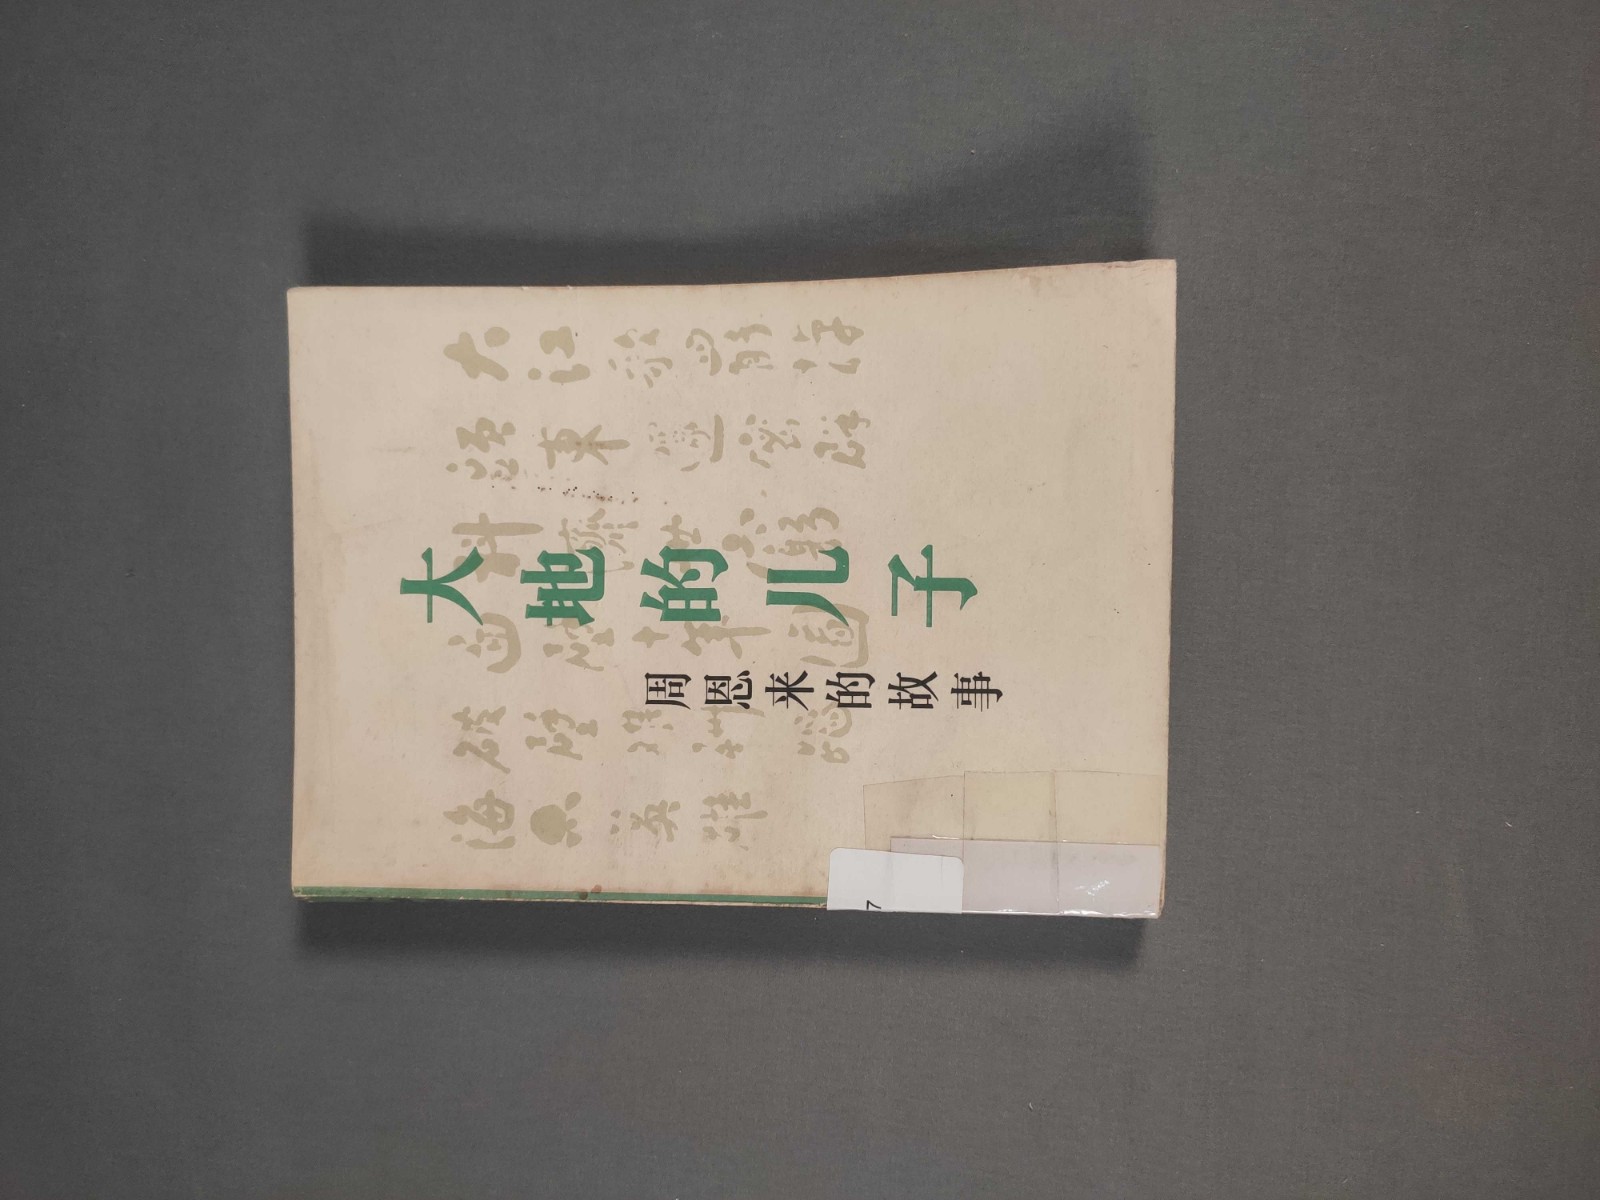 大江歌罷掉
頭東邃密群
科濟世窮
面壁十年圖
破壁難酬蹈
海亦英雄
大地的儿子
周恩来的故事
7